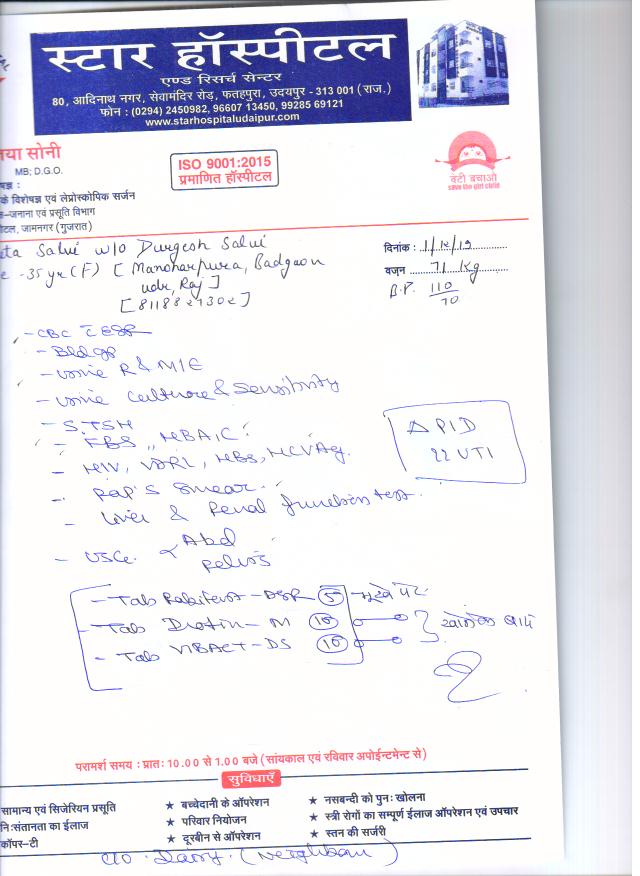 स्टार हॉस्पीटल
एण्ड रिसर्च सेन्टर
80, आदिनाथ नगर, सेवामंदिर रोड, फतहपुरा, उदयपुर - 313 001 (राज.)
फोन : (0294) 2450982, 96607 13450, 99285 69121
www.starhospitaludaipur.com
या सोनी
MB; D.G.O.
के विशेषज्ञ एवं लेप्रोस्कोपिक सर्जन
जनाना एवं प्रसूति विभाग
जामनगर (गुजरात)
ISO 9001:2015
प्रमाणित हॉस्पीटल
बेटी बचाओ
save the girl child
Salvi w/o Durgesh Salvi
-35 yr (F) [ Manoharpura, Badgaon
udr, Raj ]
दिनांक :
वजन 71 Kg
B.P. 110/70
- CBC ESR
- Bldgp
- Urine R & M/E
- Urine Culture & Sensitivity
- S.TSH
- FBS, HBA1C
- HIV, VDRL, HBS, HCVAg.
- Pap's Smear.
- Liver & Renal function test.
- USG. Abd
Pelvis
Δ PID
UTI
- Tab DSR 5 भूखे पेट
- Tab Drotin - M 10
- Tab VIBACT - DS 10
खाने के बाद
परामर्श समय : प्रातः 10.00 से 1.00 बजे (सांयकाल एवं रविवार अपोईन्टमेन्ट से)
सुविधाएँ
सामान्य एवं सिजेरियन प्रसूति ★ बच्चेदानी के ऑपरेशन ★ नसबन्दी को पुनः खोलना
नि:संतानता का ईलाज ★ परिवार नियोजन ★ स्त्री रोगों का सम्पूर्ण ईलाज ऑपरेशन एवं उपचार
कॉपर-टी ★ दूरबीन से ऑपरेशन ★ स्तन की सर्जरी
c/o Daisy (Neighbour)